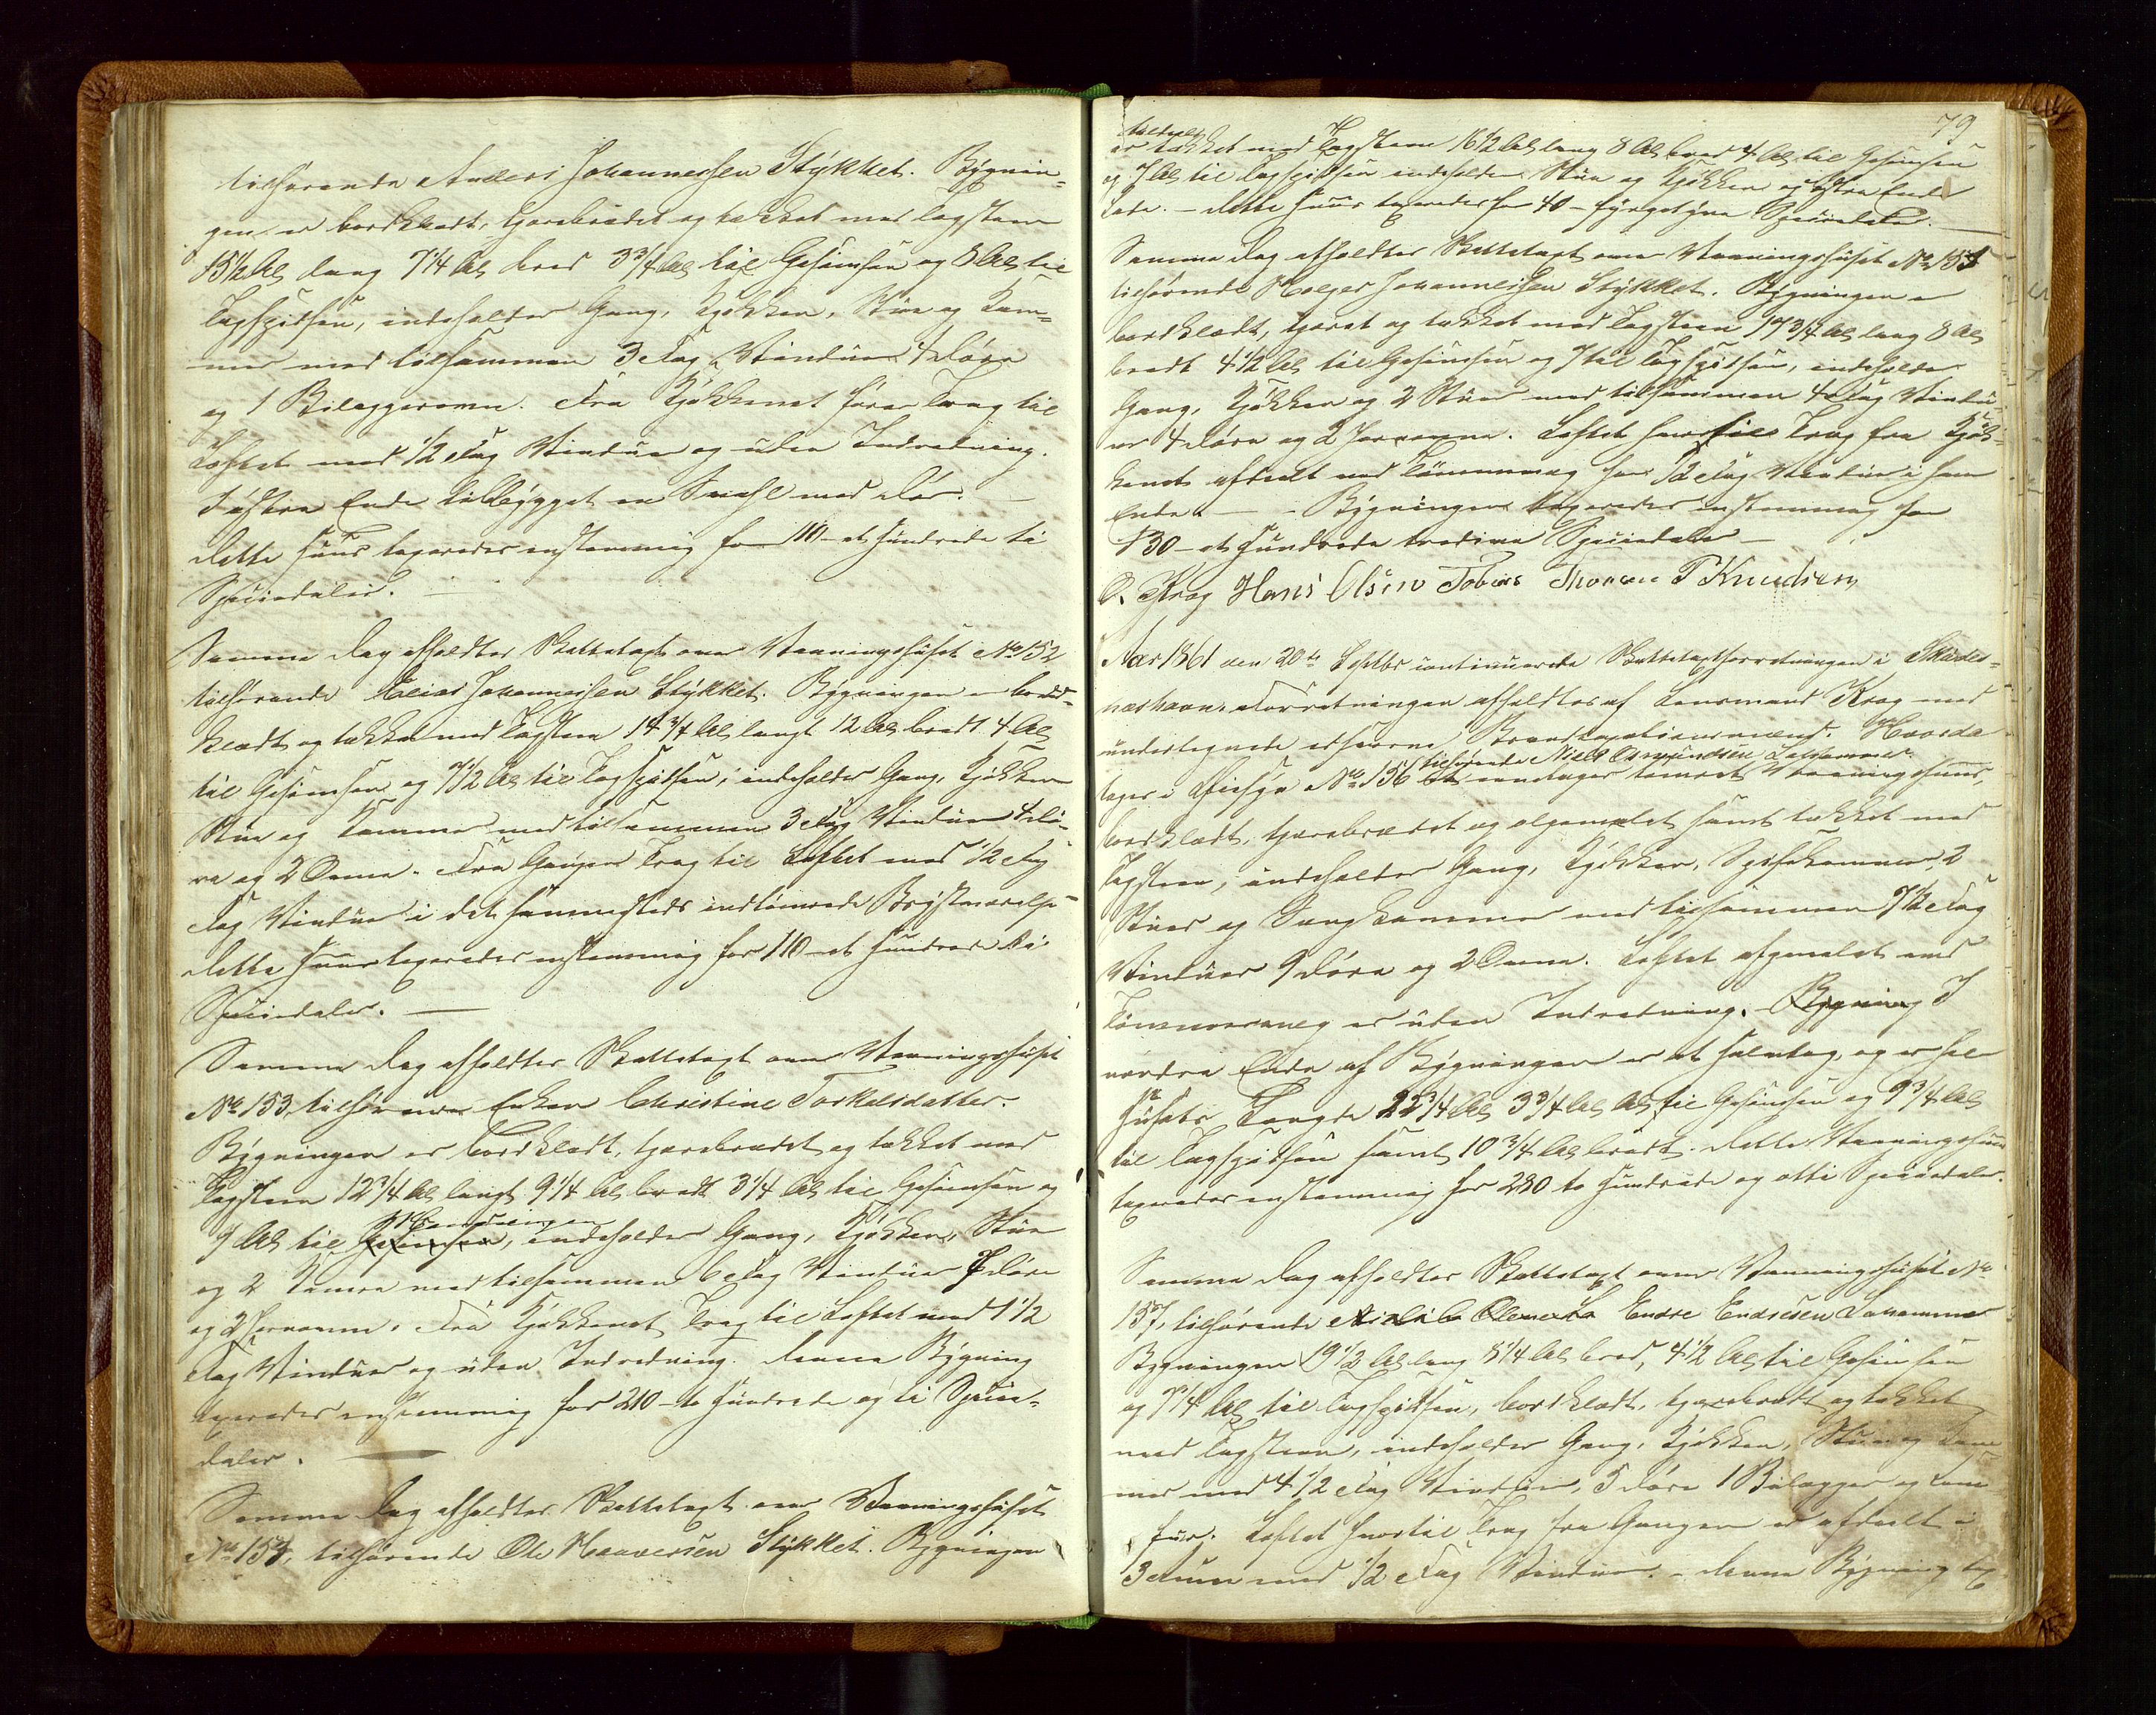 tilhørende Anders Johannessen Stykket. Bygnin-
gen er bordklædt, tjærebrædet og tækket med tagsteen
15½ Al lang 7¼ Al bred 3¾ Al til Gesimsen og 8 Al til
Tagspidsen, indeholder Gang, Kjøkken, Stue og Kam-
mer med tilsammen 3 Fag Vinduer 4 Døre
og 1 Bilæggerovn. Fra Kjøkkenet fører Trap til
Loftet med ½ Fag Vindue og uden Indredning.
I østre Ende tilbygget en Svahl med Dør. —
Dette Huus taxeredes enstemmig for 110 - et hundrede ti
Speciedaler. —
Samme Dag afholdtes Skattetaxt over Vaaningshuset No 152
tilhørende Elias Johannessen Stykket. Bygningen er bord-
klædt og tækket med Tagsteen 14¾ Al langt 12 Al bredt 4 Al
til Gesimsen og 7½ Al til Tagspidsen, indeholder Gang, Kjøkken
Stue og Kammer med tilsammen 3 Fag Vinduer 4 Dø-
re og 2 Ovne. Fra Gangen Trap til Loftet med ½ Fag
Fag Vindue i det sammesteds indtømrede Qvistværelse
Dette Huus taxeredes enstemmig for 110 - et hundrede ti
Speciedaler. —
Samme Dag afholdtes Skattetaxt over Vaaningshuset
No 153 tilhørende Enken Christine Torkelsdatter.
Bygningen er bordklædt, tjærebrædet og tækket med
Tagsteen 12¾ Al langt 9¼ Al bredt 3¼ Al til Gesimsen og
7 Al til Gesimsen, indeholder Gang, Kjøkken, Stue
og 2 Kamre med tilsammen 6 Fag Vinduer 7 Døre
og 2 Jernovne. Fra Kjøkkenet Trap til Loftet med 1½
Fag Vinduer og uden Indredning. Denne Bygning
taxeredes enstemmig for 210 - to hundrede og ti Specie-
daler. —
Samme Dag afholdtes Skattetaxt over Vaaningshuset
No 154, tilhørende Ole Haaversen Stykket. Bygningen
79
er tækket med Tagsteen 16½ Al lang 8 Al bred 4 Al til Gesimsen
og 7 Al til Tagspidsen indeholder Stue og Kjøkken og østre Ende
Lade. - Dette Huus taxeredes for 40 - fyrgetyve Speciedaler. —
Samme Dag afholdtes Skattetaxt over Vaaningshuset No 155
tilhørende Holger Johannessen Stykket. Bygningen er
bordklædt, tjæret og tækket med Tagsteen 17¾ Al lang 8 Al
bredt 4½ Al til Gesimsen og 7 til Tagspidsen, indeholder
Gang, Kjøkken og 2 Stuer med tilsammen 4 Fag Vindu-
er 4 Døre og 2 Jernovne. Loftet hvortil Trap fra Kjøk-
kenet afdeelt med Tømmervæg har ½ Fag Vindue i hver
Ende. — Bygningen taxeredes enstemmig for
130 - et hundrede tredive Speciedaler —
O. Krag Hans Olsen Tobias Thorsen P Knudsen
Aar 1861 den 20de Septbr continuerede Skattetaxtforretningen i Skudes-
næshavn. Forretningen afholdtes af Lensmand Krag med
undertegnede edsvorne Brandtaxtionsmænd. Hvorda
tilhørende Niels Osmundsen Lahammer
toges i Øiesyn No 156 et eenetages tømret Vaaningshuus,
bordklædt, tjærebrædet og oljemalet samt tækket med
Tagsteen, indeholder Gang, Kjøkken, Spisekammer, 2
Stuer og Sengkammer med tilsammen 7½ Fag
Vinduer 9 Døre og 2 Ovne. Loftet afdeelet med
Tømmervæg er uden Indredning. Bygning I
nordre Ende af Bygningen er et halvtag, og er hele
Husets Længde 22¾ Al 3¾ Al til Gesimsen og 9¾ Al
til Tagspidsen samt 10¾ Al bredt. Dette Vaaningshuus
taxeredes enstemmig for 280 to hundrede og otti Speciedaler.
Samme Dag afholdtes Skattetaxt over Vaaningshuset No
157, tilhørende Endre Endresen Lahammer
Bygningen 19½ Al lang 8¼ Al bred, 4½ Al til Gesimsen
og 7¼ Al til Tagspidsen, bordklædt, tjærebrædt og tækket
med Tagsteen, indeholder Gang, Kjøkken, Stue og Kam-
mer med 4½ Fag Vinduer, 5 Døre 1 Bilægger og
Loftet hvortil Trap fra Gangen er afdeelt i
3 Rum med ½ Fag Vindue. - Denne Bygning tax